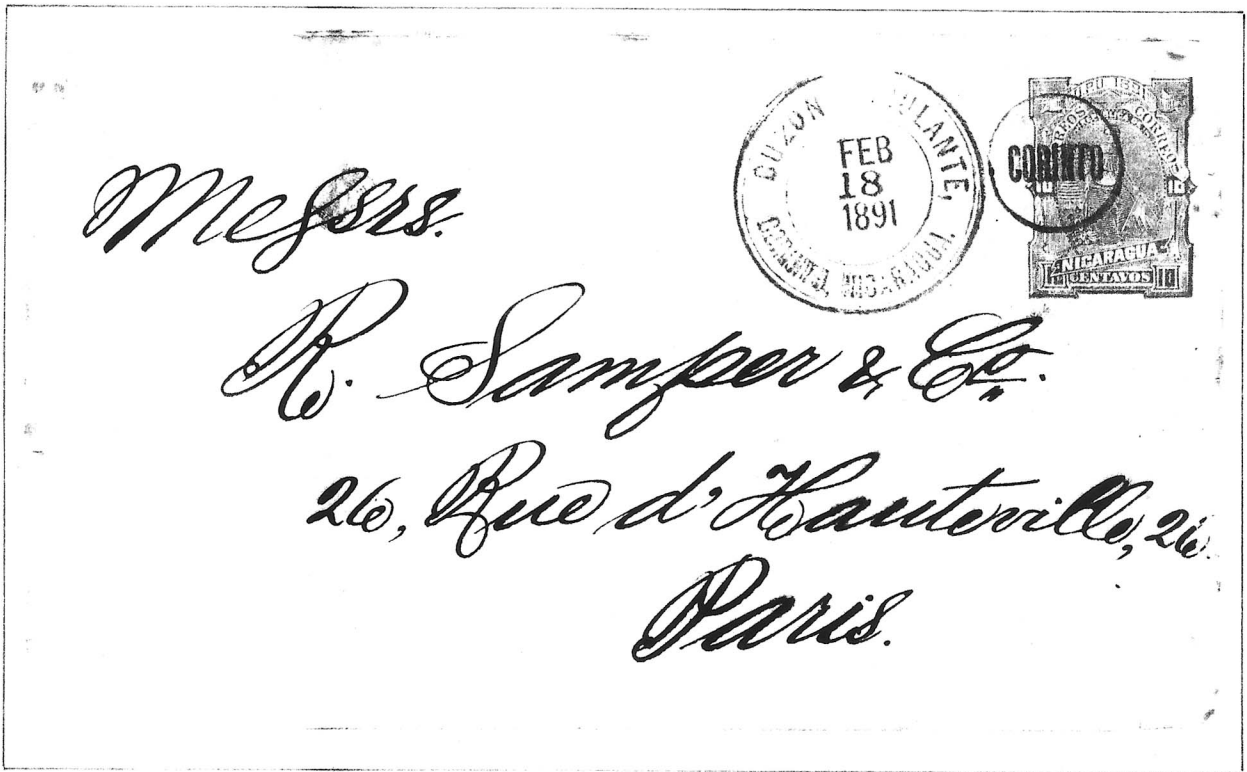 Messrs.
R. Samper & Co.
26, Rue d'Hauteville, 26.
Paris.
BUZON
FEB
18
1891
CORINTO, NICARAGUA.
CORINTO
CORREOS
10 10
NICARAGUA
CENTAVOS 10